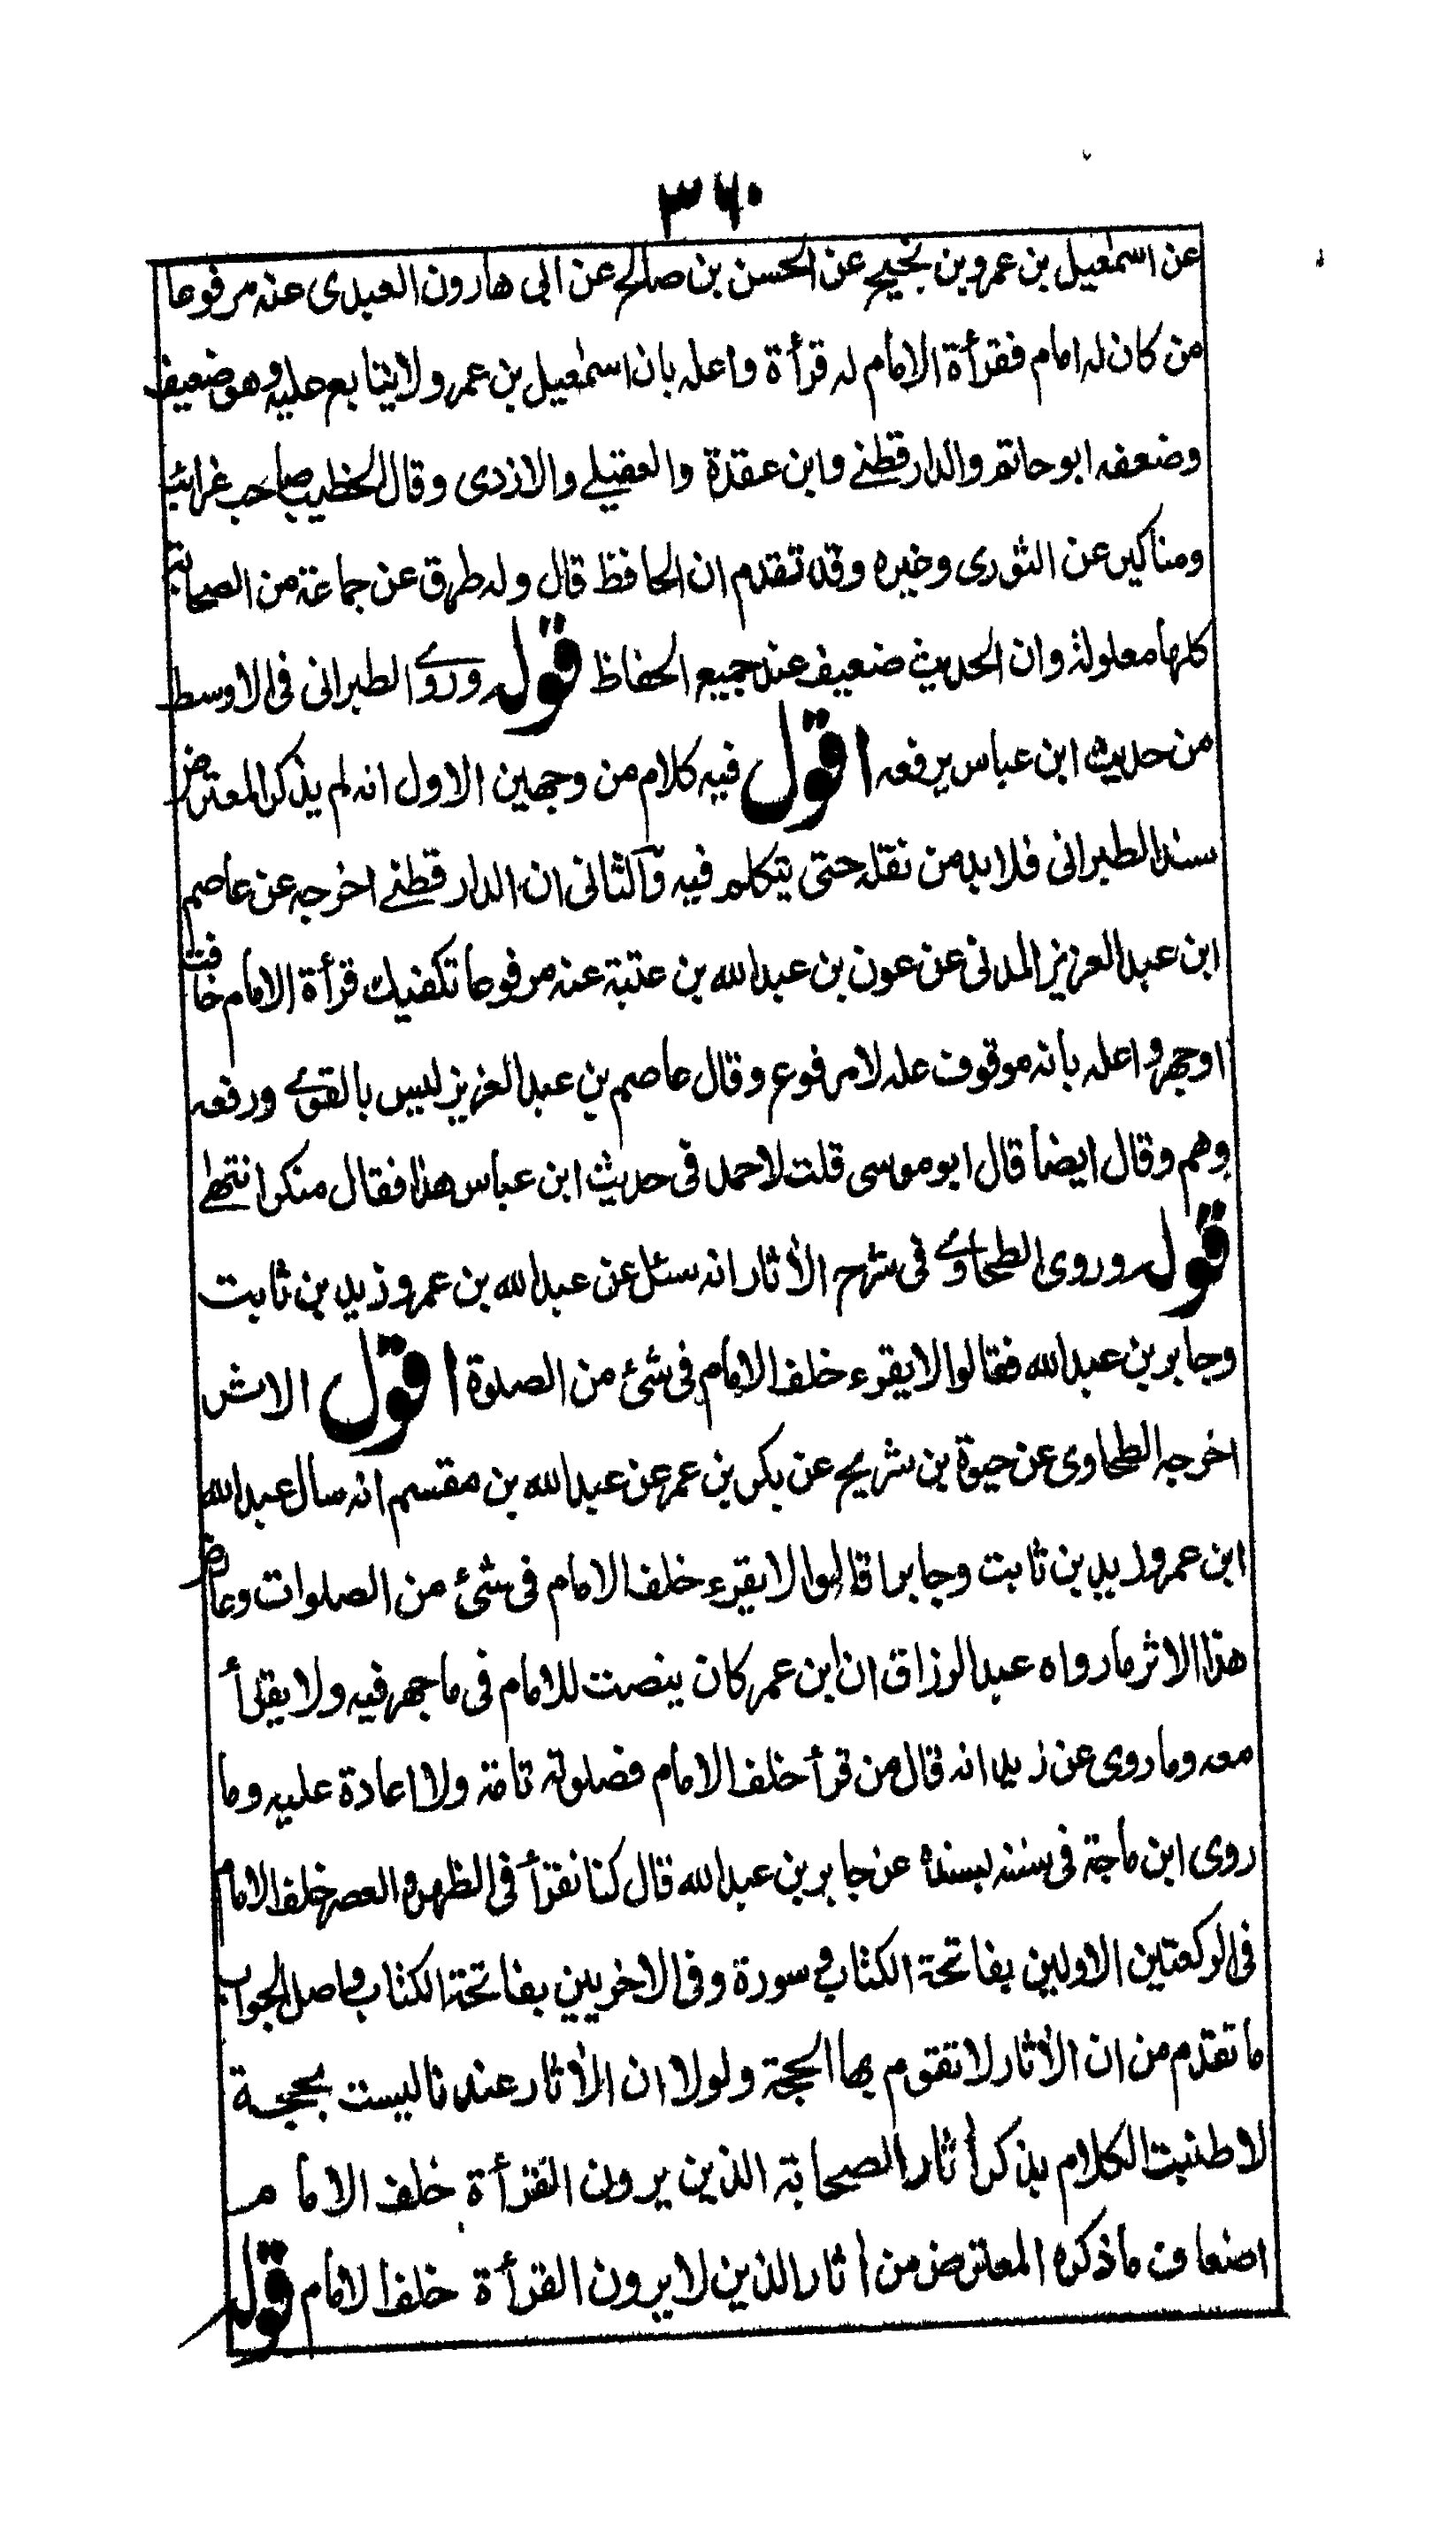 ٣٦٠
عن اسمٰعيل بن عمرو بن نجيح عن الحسن بن صالح عن ابى هارون العبدى عنه مرفوعا
من كان له امام فقرأة الامام له قرأة واعله بان اسمٰعيل بن عمرو لا يتابع عليه وهو ضعيف
وضعفه ابو حاتم والدارقطنے وابن عقدة والعقيلے والازدى وقال الخطيب صاحب غرائب
ومناكير عن الثورى وغيره وقد تقدم ان الحافظ قال وله طرق عن جماعة من الصحابة
كلها معلولة وان الحديث ضعيف عند جميع الحفاظ قوله وروے الطبرانى فى الاوسط
من حديث ابن عباس يرفعه اقول فيه كلام من وجهين الاول انه لم يذكر المعترض
سند الطبرانى فلا بد من نقله حتى يتكلم فيه والثانى ان الدارقطنے اخرجه عن عاصم
ابن عبد العزيز المدنى عن عون بن عبد الله بن عتبة عنه مرفوعا تكفيك قرأة الامام خافت
اوجهر واعله بانه موقوف عله لا مرفوع وقال عاصم بن عبد العزيز ليس بالقوے ورفعه
وهم وقال ايضا قال ابو موسى قلت لاحمد فى حديث ابن عباس هذا فقال منكر انتهے
قوله وروى الطحاوے فى شرح الأثار انه سئل عن عبد الله بن عمر و زيد بن ثابت
وجابر بن عبد الله فقالوا لا يقرء خلف الامام فى شئ من الصلوة اقول الاثر
اخرجه الطحاوى عن حيوة بن شريح عن بكر بن عمر عن عبد الله بن مقسم انه سال عبد الله
ابن عمر وزيد بن ثابت وجابرا قالوا لا يقرء خلف الامام فى شئ من الصلوات وعارض
هذا الاثر ما رواه عبد الرزاق ان ابن عمر كان ينصت للامام فى ما جهر فيه ولا يقرأ
معه وما روى عن زيد انه قال من قرأ خلف الامام فصلوته تامة ولا اعادة عليه وما
روى ابن ماجة فى سننه بسنده عن جابر بن عبد الله قال كنا نقرأ فى الظهر والعصر خلف الامام
فى الركعتين الاوليين بفاتحة الكتاب وسورة وفى الاخريين بفاتحة الكتاب واصل الجواب
ما تقدم من ان الأثار لا تقوم بها الحجة ولولا ان الأثار عندنا ليست بحجة
لاطنبت الكلام بذكر أثار الصحابة الذين يرون القرأة خلف الامام
اضعاف ما ذكره المعترض من أثار الذين لا يرون القرأة خلف الامام قوله